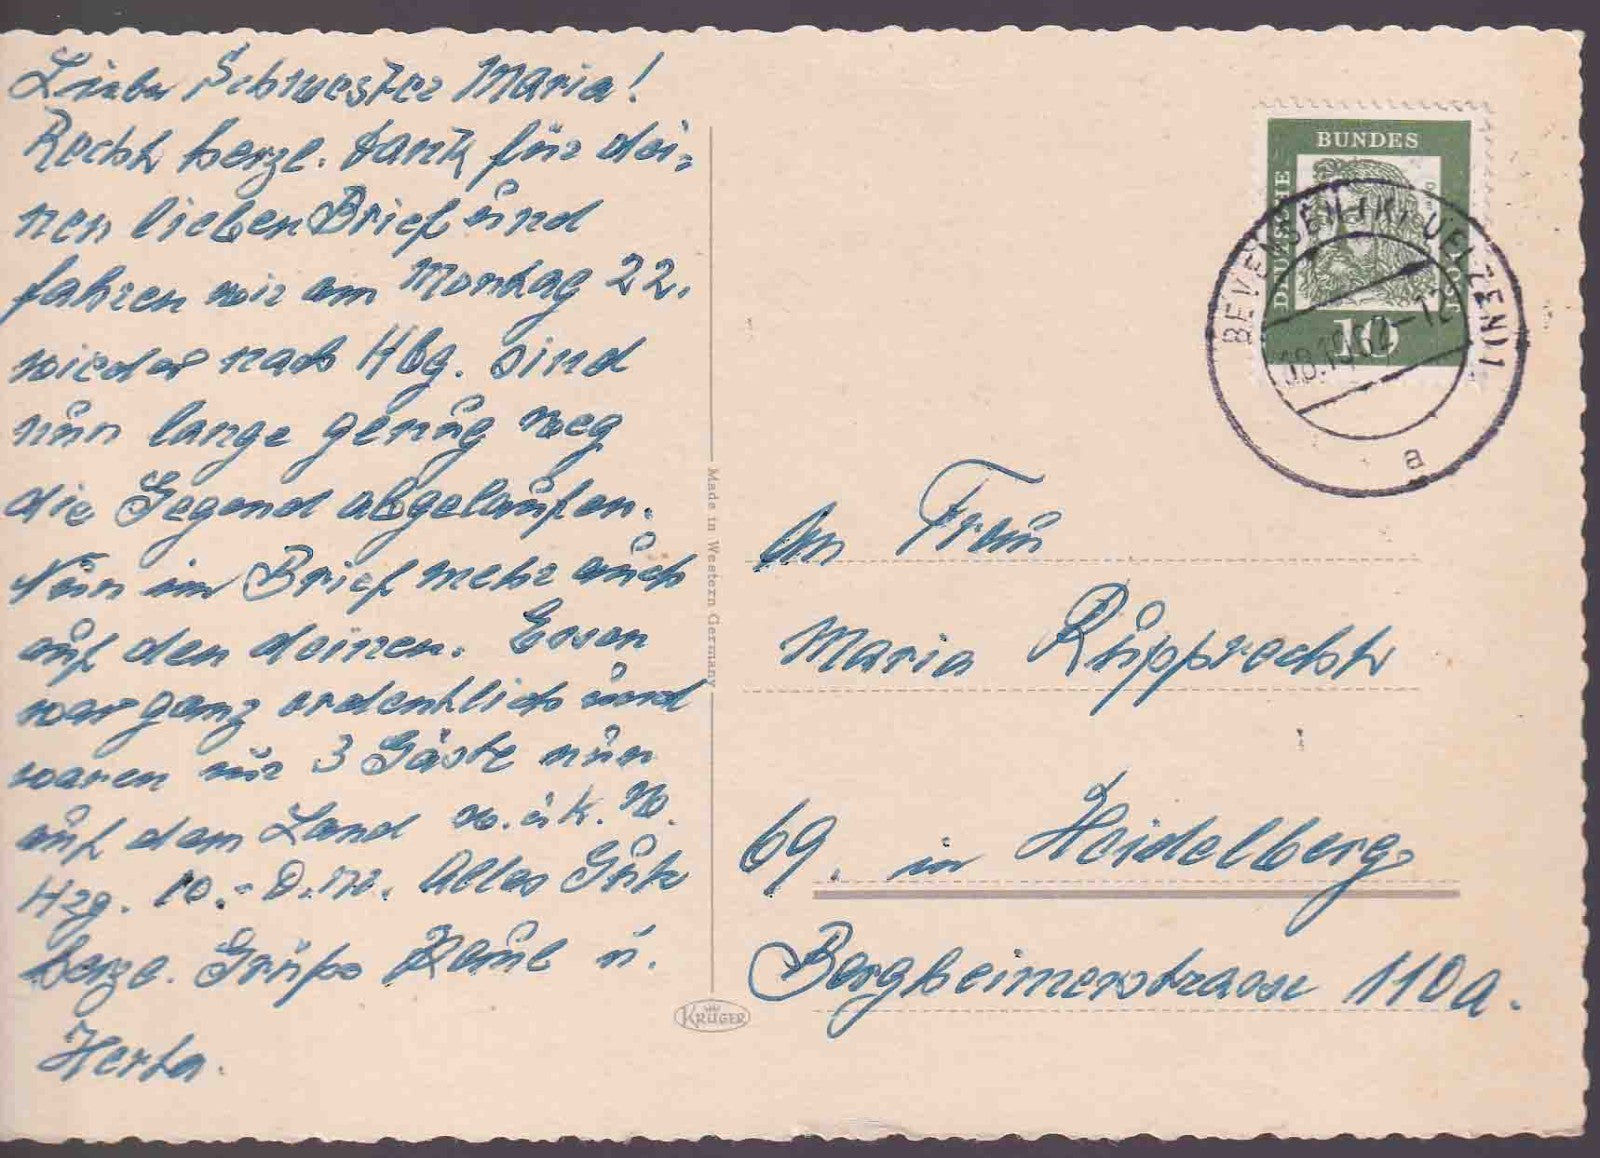 Liebe Schwester Maria!
Recht herzl. Dank für dei-
nen lieben Brief und
fahren wir am Montag 22.
wieder nach Hbg. sind
nun lange genug weg
die Gegend abgelaufen.
Nun im Brief mehr auch
auf den deinen. Essen
war ganz ordentlich und
waren wir 3 Gäste nun
auf dem Land w. u. k. W.
Hzg. 10.- D.M. Alles Gute
herzl. Grüße Paul u.
Herta.
Made in Western Germany
KRÜGER
DEUTSCHE
BUNDES
POST
10
BEVENSEN (KR UELZEN) 1
18.10.62-12
a
An Frau
Maria Rupprecht
69. in Heidelberg
Bergheimerstrasse 110a.